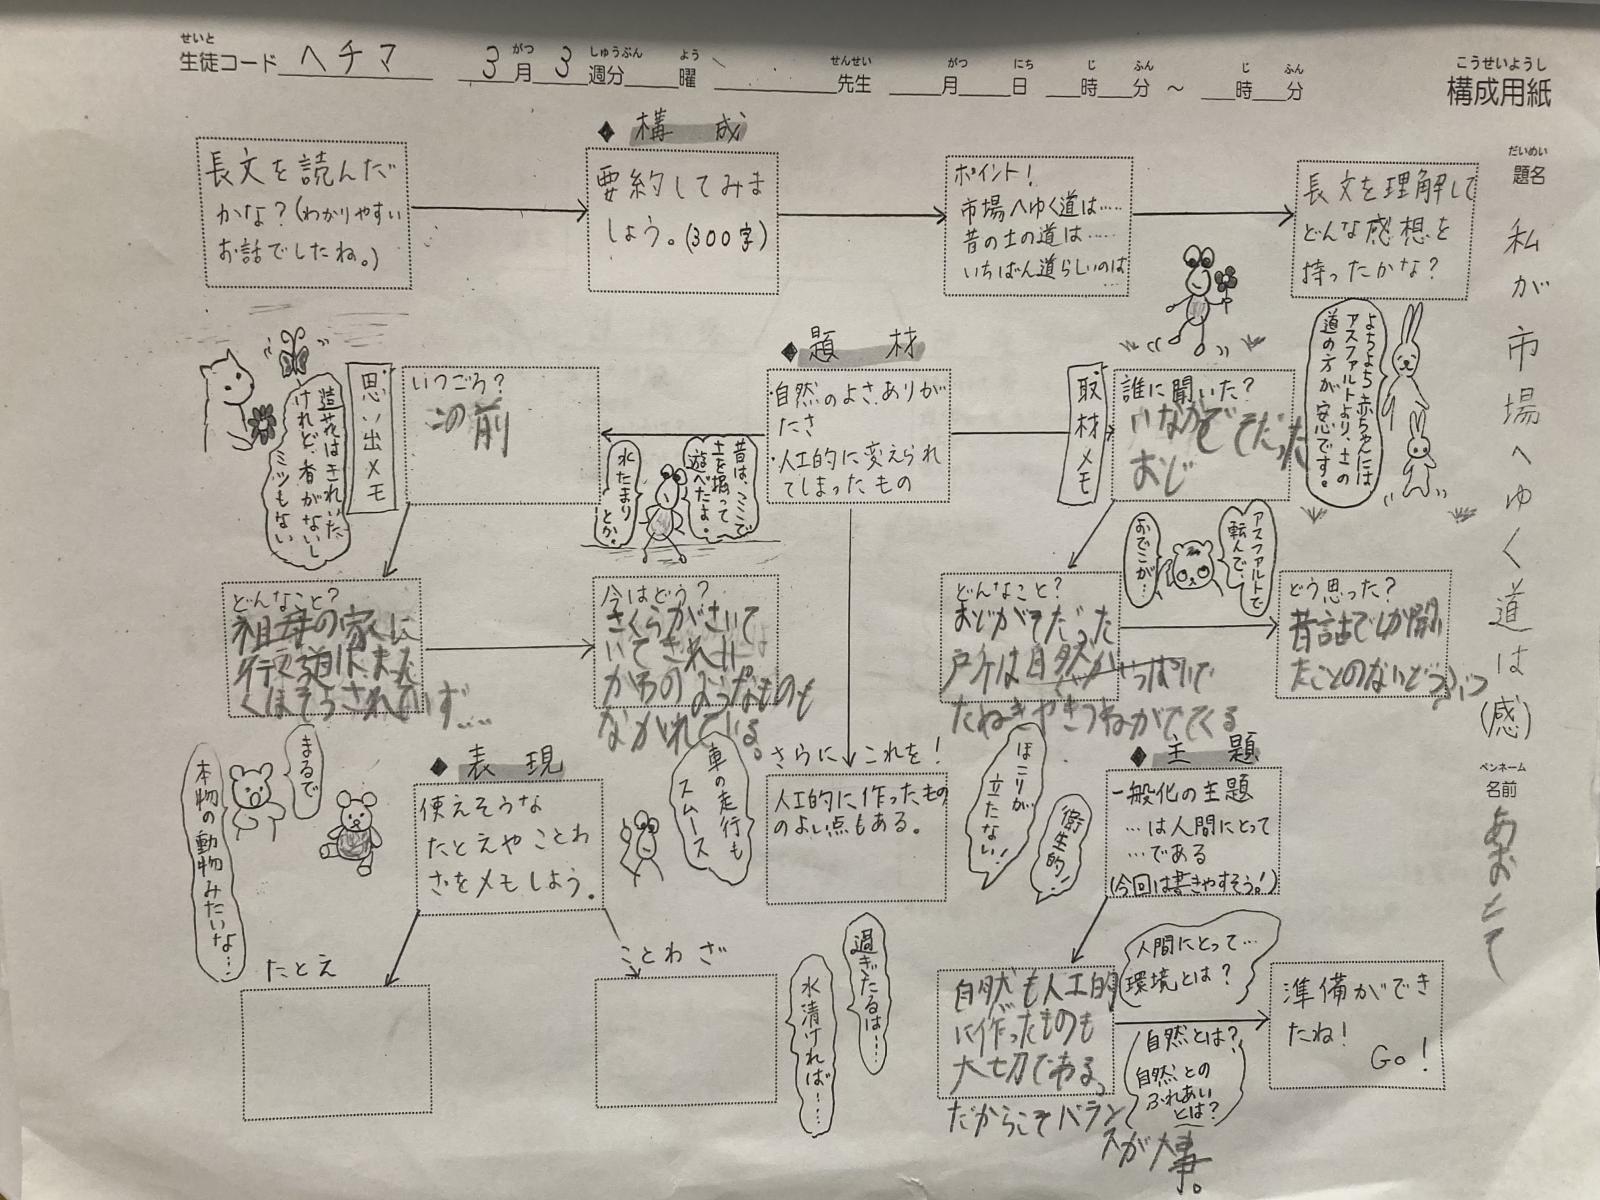 せいと
生徒コード ヘチマ 3月がつ 3週分しゅうぶん 曜よう 先生せんせい 月がつ 日にち 時じ 分ふん ～ 時じ 分ふん
こうせいようし
構成用紙
だいめい
題名
私が市場へゆく道は(感)
ペンネーム
名前
あおとて
◆構成
長文を読んだ
かな?(わかりやすい
お話でしたね。)
要約してみま
しょう。(300字)
ポイント!
市場へゆく道は……
昔の土の道は……
いちばん道らしいのは
長文を理解して
どんな感想を
持ったかな?
よちよち赤ちゃんには
アスファルトより、土の
道の方が安心です。
◆題材
・自然のよさ、ありが
たさ
・人工的に変えられ
てしまったもの
思い出メモ
いつごろ?
この前
造花はきれいだ
けれど、香がないし
ミツもない
昔は、ここで
土を掘って
遊べたよ。
水たまり
とか。
取材メモ
誰に聞いた?
いなかでそだった
おじ
アスファルトで
転んで、
おでこが…
どんなこと?
祖母の家に
行
くほそうされていず……
今はどう?
さくらがさいて
いてきれい。
かわのようなものも
ながれている。
どんなこと?
おじがそだった
戸ケは自然がいっぱいで
たぬきやきつねがでてくる
どう思った?
昔話でしか聞い
たことのないどうぶつ
さらにこれを!
人工的に作ったもの
のよい点もある。
車の走行も
スムース
ほこりが
立たない!
衛生的!
◆表現
使えそうな
たとえやことわ
ざをメモしよう。
まるで
本物の動物みたいな…
たとえ
ことわざ
過ぎたるは……
水清ければ……
◆主題
一般化の主題
…は人間にとって
…である
(今回は書きやすそう!)
自然も人工的
に作ったものも
大切である。
だからこそバラン
スが大事。
人間にとって…
環境とは?
自然とは?
自然との
ふれあい
とは?
準備ができ
たね!
Go!